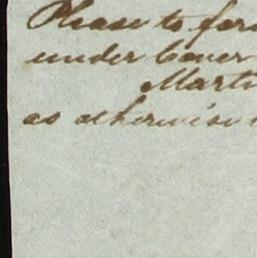 Please to for
under Cover
Marti
as otherwise